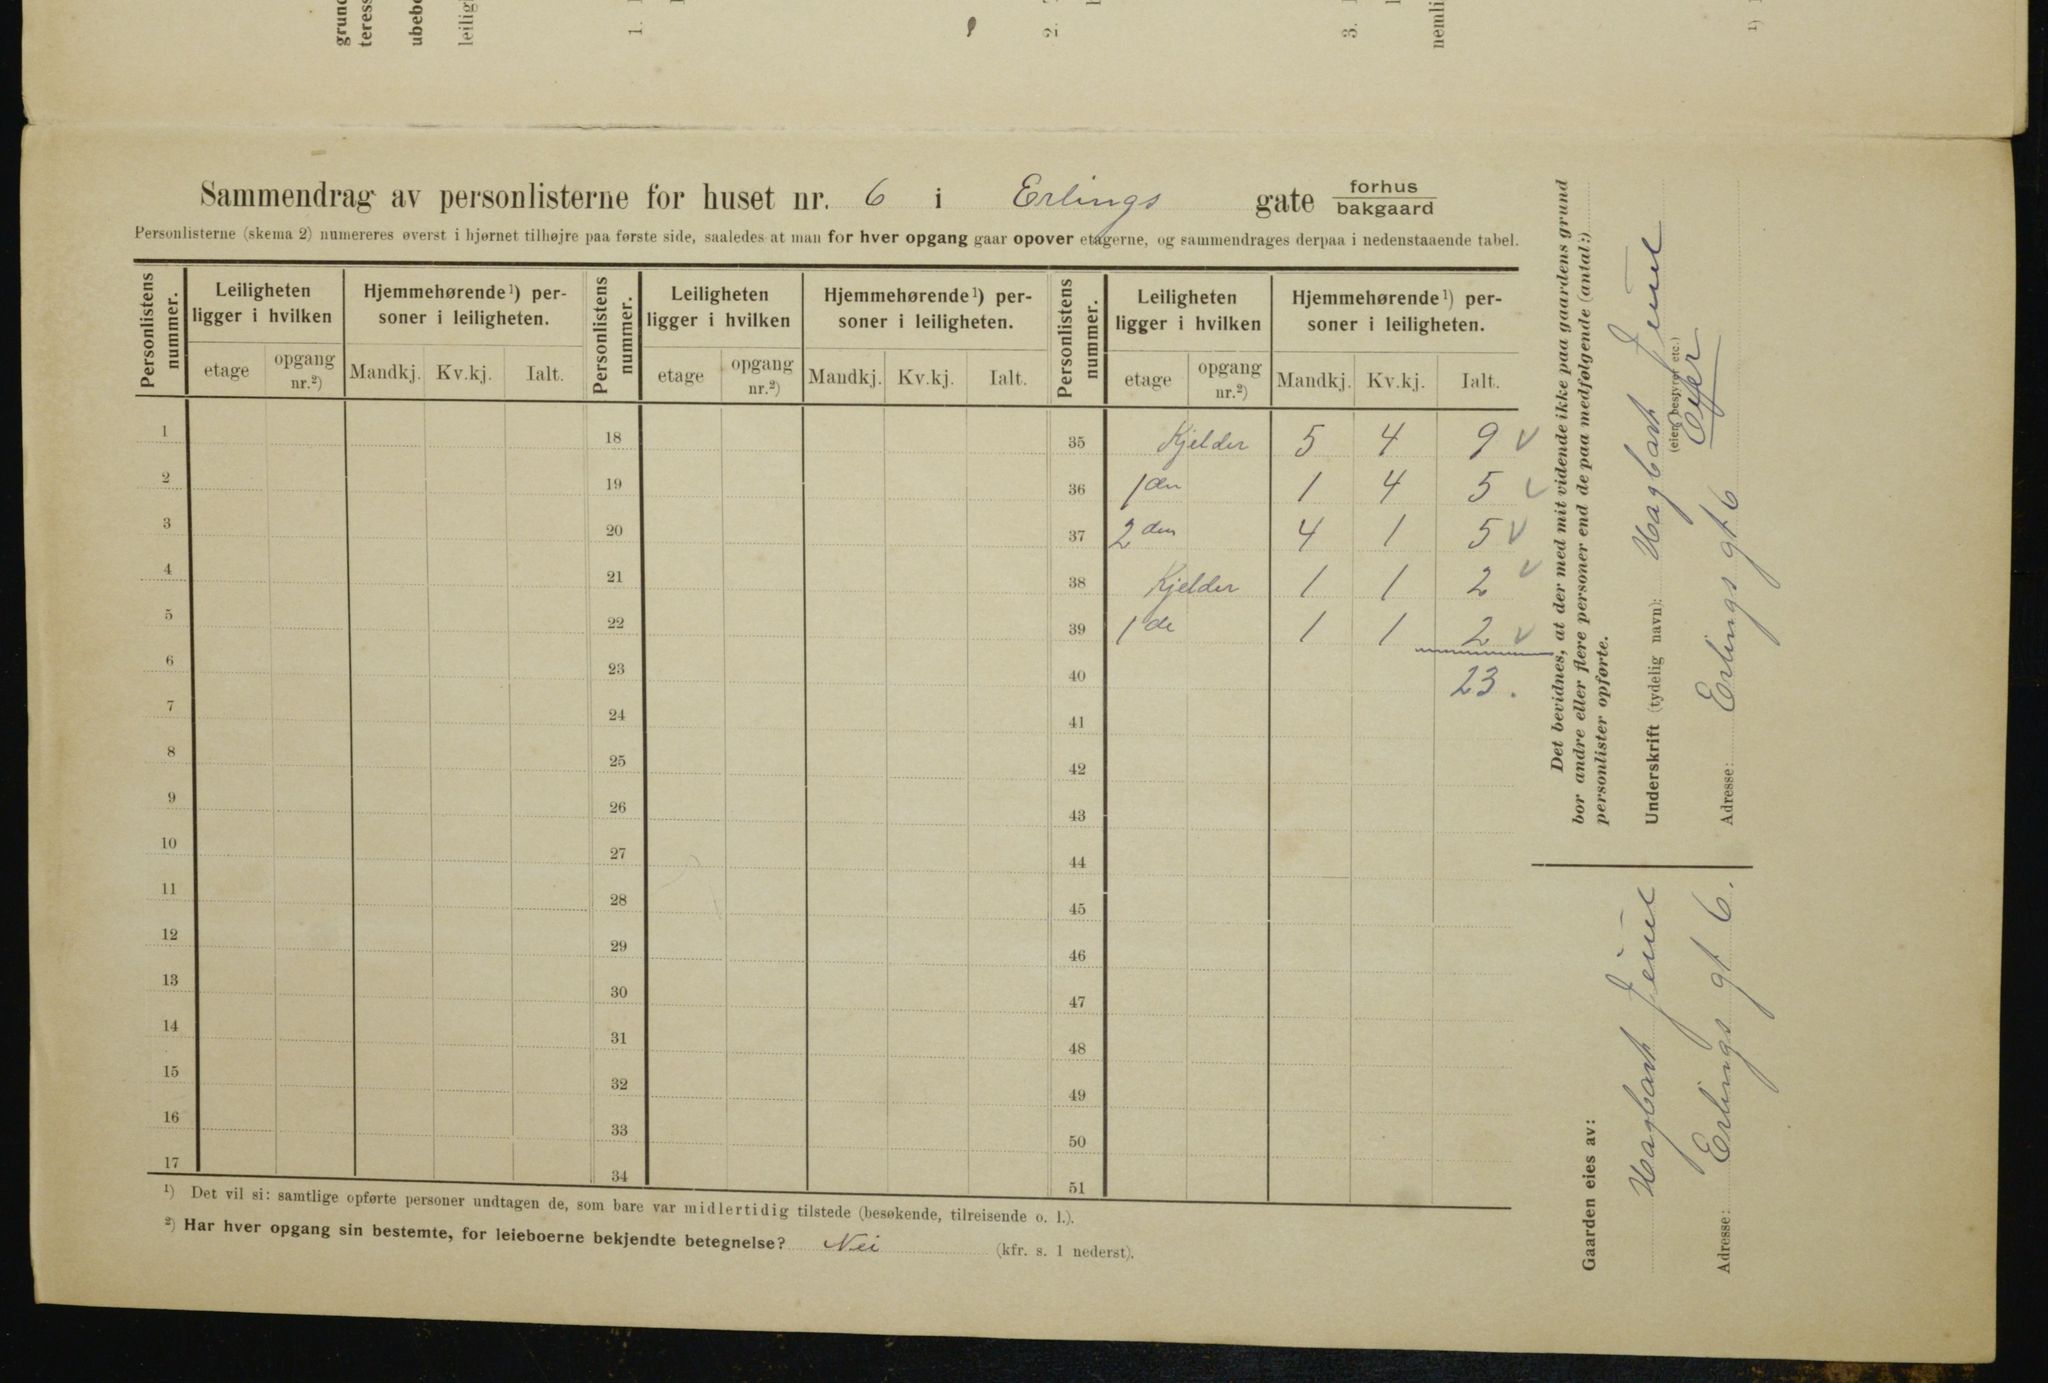 grund
teress
ubebo
leiligh
1.
2.
3.
nemli
1)
Sammendrag av personlisterne for huset nr. 6 i Erlings gate forhus
bakgaard
Personlisterne (skema 2) numereres øverst i hjørnet tilhøjre paa første side, saaledes at man for hver opgang gaar opover etagerne, og sammendrages derpaa i nedenstaaende tabel.
Personlistens nummer. Leiligheten ligger i hvilken Hjemmehørende ¹) personer i leiligheten. Personlistens nummer. Leiligheten ligger i hvilken Hjemmehørende ¹) personer i leiligheten. Personlistens nummer. Leiligheten ligger i hvilken Hjemmehørende ¹) personer i leiligheten.
etage opgang nr.²) Mandkj. Kv.kj. Ialt. etage opgang nr.²) Mandkj. Kv.kj. Ialt. etage opgang nr.²) Mandkj. Kv.kj. Ialt.
1 18 35 Kjelder 5 4 9 v
2 19 36 1 den 1 4 5 v
3 20 37 2 den 4 1 5 v
4 21 38 Kjelder 1 1 2 v
5 22 39 1 de 1 1 2 v
6 23 40 23.
7 24 41
8 25 42
9 26 43
10 27 44
11 28 45
12 29 46
13 30 47
14 31 48
15 32 49
16 33 50
17 34 51
¹) Det vil si: samtlige opførte personer undtagen de, som bare var midlertidig tilstede (besøkende, tilreisende o. l.).
²) Har hver opgang sin bestemte, for leieboerne bekjendte betegnelse? Nei (kfr. s. 1 nederst).
Det bevidnes, at der med mit vidende ikke paa gaardens grund
bor andre eller flere personer end de paa medfølgende (antal:)
personlister opførte.
Underskrift (tydelig navn): Hagbart
(eier, bestyrer etc.)
Eier
Adresse: Erlings gt 6
Gaarden eies av:
Hagbart
Adresse: Erlings gt 6.